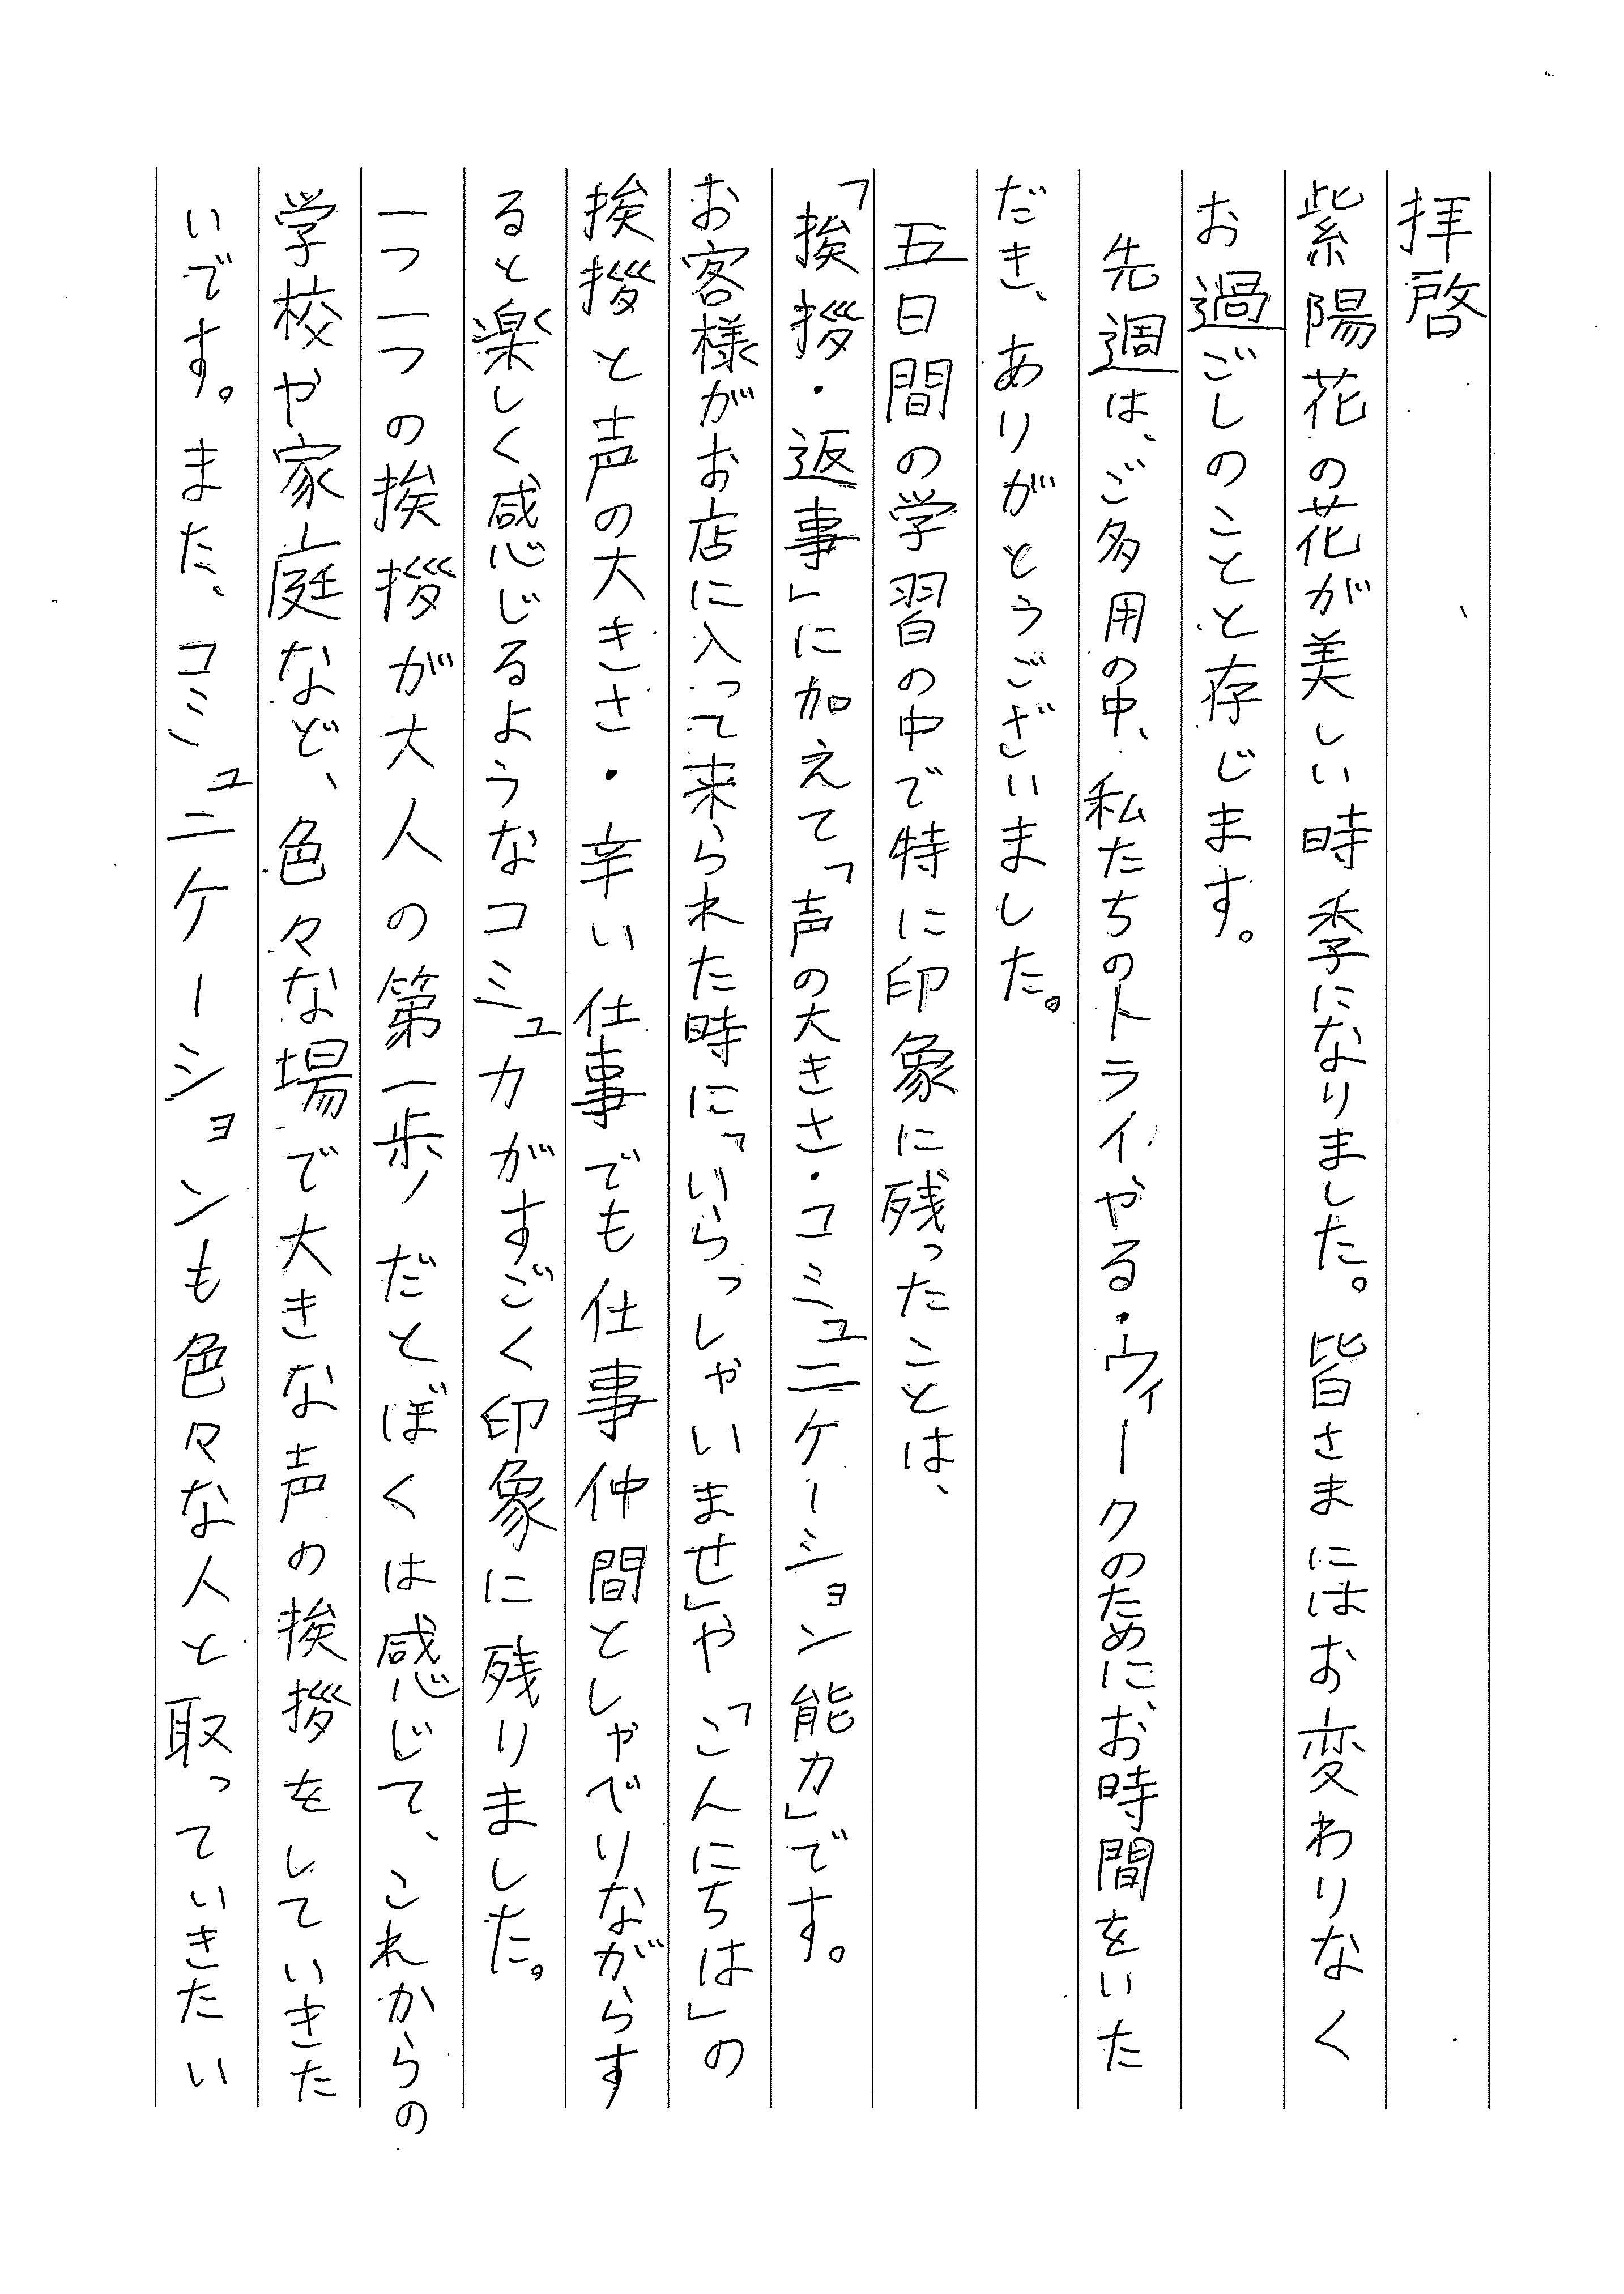 拝啓
紫陽花の花が美しい時季になりました。皆さまにはお変わりなく
お過ごしのことと存じます。
先週は、ご多用の中、私たちのトライやる・ウィークのためにお時間をいた
だき、ありがとうございました。
五日間の学習の中で特に印象に残ったことは、
「挨拶・返事」に加えて「声の大きさ・コミュニケーション能力」です。
お客様がお店に入って来られた時に「いらっしゃいませ」や「こんにちは」の
挨拶と声の大きさ・辛い仕事でも仕事仲間としゃべりながらす
ると楽しく感じるようなコミュ力がすごく印象に残りました。
一つ一つの挨拶が大人の第一歩だとぼくは感じて、これからの
学校や家庭など、色々な場で大きな声の挨拶をしていきた
いです。また、コミュニケーションも色々な人と取っていきたい